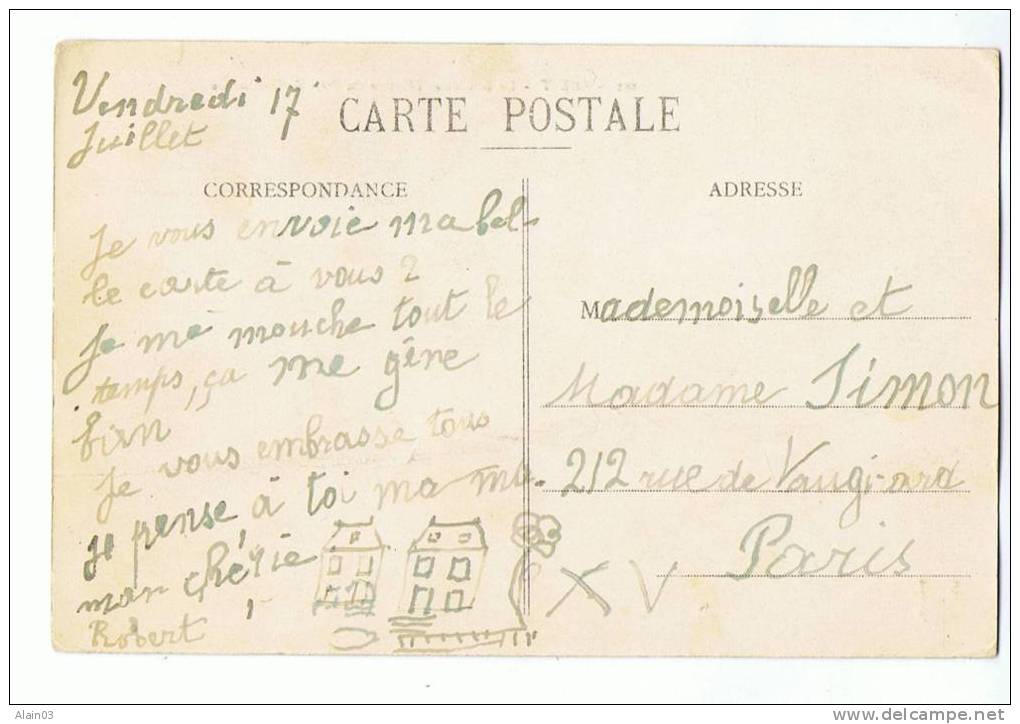 Vendredi 17
Juillet
CARTE POSTALE
CORRESPONDANCE
Je vous envoie ma bel-
le carte à vous 2
Je me mouche tout le
temps, ça me gêne
bien
Je vous embrasse tous
je pense à toi ma ma-
man chérie
Robert
ADRESSE
Mademoiselle et
Madame Simon
212 rue de Vaugirard
Paris
XV
Alain03
www.delcampe.net